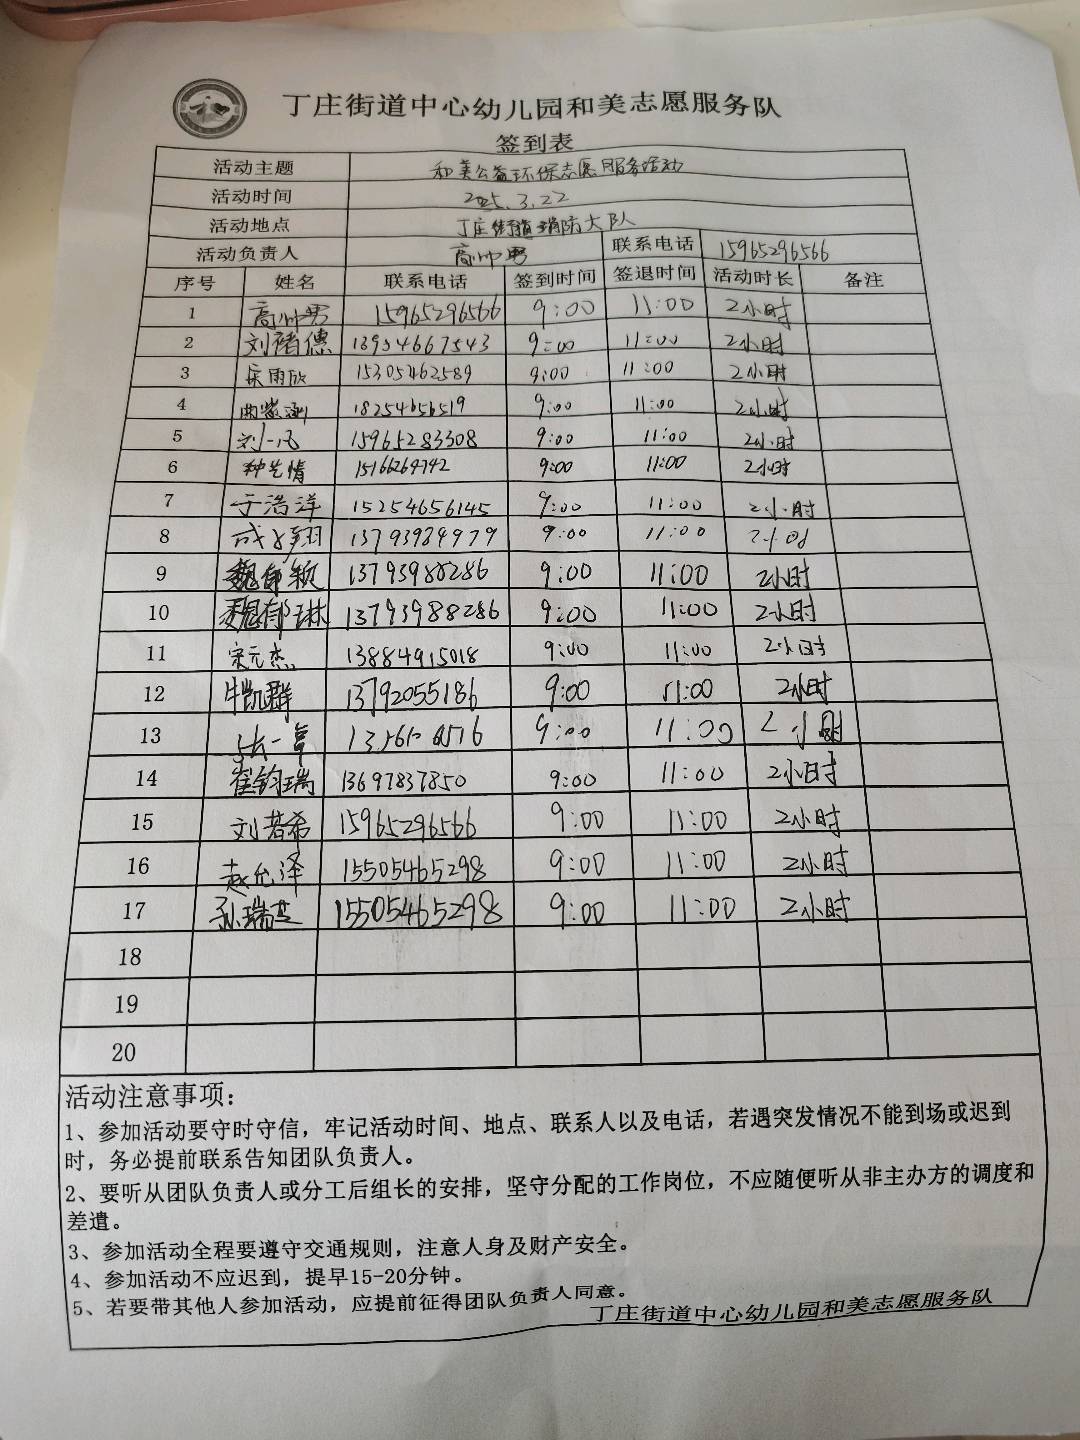 丁庄街道中心幼儿园和美志愿服务队
签到表
活动主题 和美公益环保志愿服务活动
活动时间 2025.3.22
活动地点 丁庄街道消防大队
活动负责人 高帅男 联系电话 15965296566
序号 姓名 联系电话 签到时间 签退时间 活动时长 备注
1 高帅男 15965296566 9:00 11:00 2小时
2 刘褚德 13954667543 9:00 11:00 2小时
3 宋雨欣 15305462589 9:00 11:00 2小时
4 18254656519 9:00 11:00 2小时
5 刘一凡 15965283308 9:00 11:00 2小时
6 种艺情 15166264742 9:00 11:00 2小时
7 于浩洋 15254656145 9:00 11:00 2小时
8 13793984979 9:00 11:00 2小时
9 魏郁颖 13793988286 9:00 11:00 2小时
10 魏郁琳 13793988286 9:00 11:00 2小时
11 宋元杰 13884915018 9:00 11:00 2小时
12 牛凯群 13792055186 9:00 11:00 2小时
13 张一 9:00 11:00 2小时
14 崔钧瑞 13697837850 9:00 11:00 2小时
15 刘若希 15965296566 9:00 11:00 2小时
16 赵允泽 15505465298 9:00 11:00 2小时
17 孙瑞 15505465298 9:00 11:00 2小时
18
19
20
活动注意事项：
1、参加活动要守时守信，牢记活动时间、地点、联系人以及电话，若遇突发情况不能到场或迟到
时，务必提前联系告知团队负责人。
2、要听从团队负责人或分工后组长的安排，坚守分配的工作岗位，不应随便听从非主办方的调度和
差遣。
3、参加活动全程要遵守交通规则，注意人身及财产安全。
4、参加活动不应迟到，提早15-20分钟。
5、若要带其他人参加活动，应提前征得团队负责人同意。
丁庄街道中心幼儿园和美志愿服务队